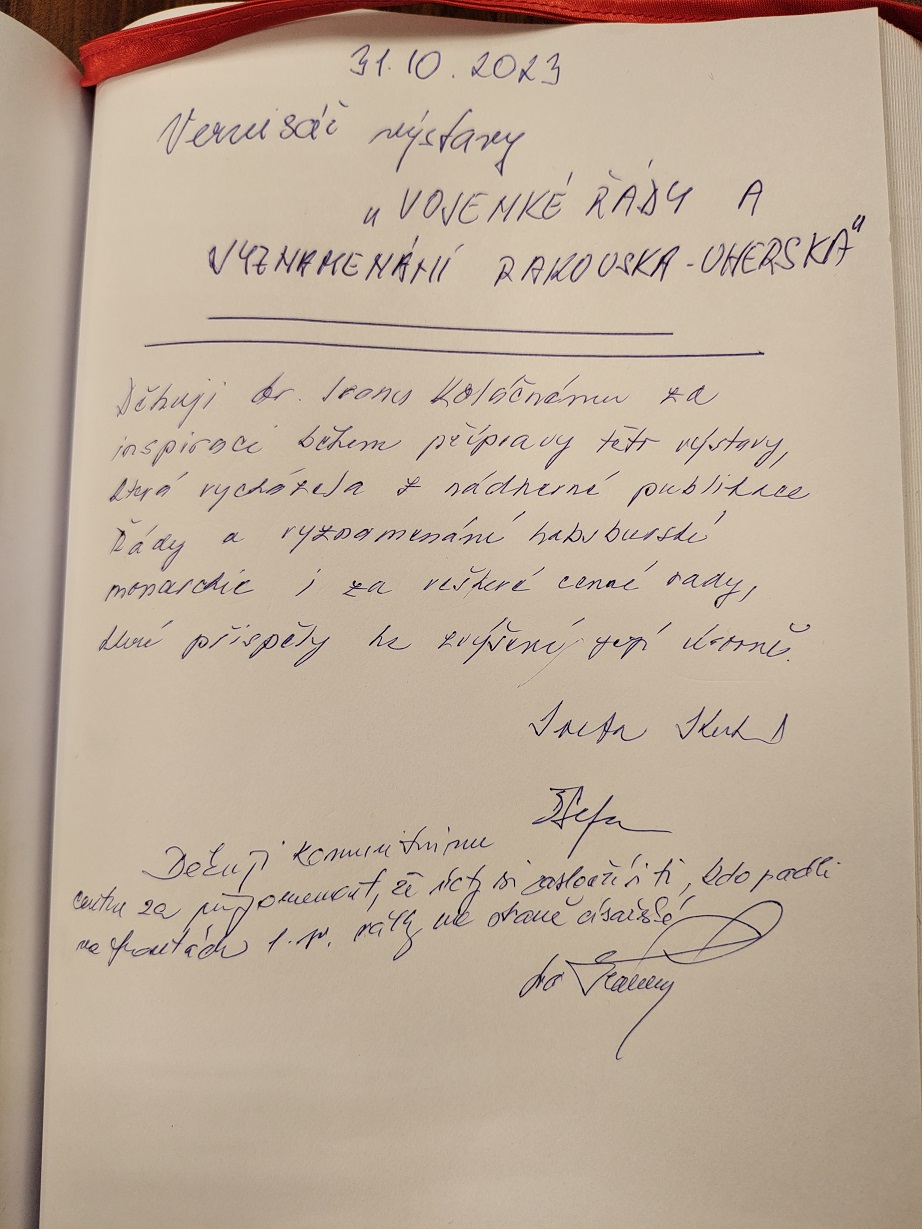 31.10.2023
Vernisáž výstavy
„VOJENKÉ ŘÁDY A
VYZNAMENÁNÍ RAKOUSKA-UHERSKA“
Děkuji dr. Ivanu Koláčnému za
inspiraci během přípravy této výstavy,
která vycházela z nádherné publikace
Řády a vyznamenání habsburské
monarchie i za veškeré cenné rady,
které přispěly ke zvýšení její úrovně.
Iveta
Děkuji Komunitnímu
centru za připomenout, že úcty si zaslouží i ti, kdo padli
na frontách 1. sv. války na straně císařské